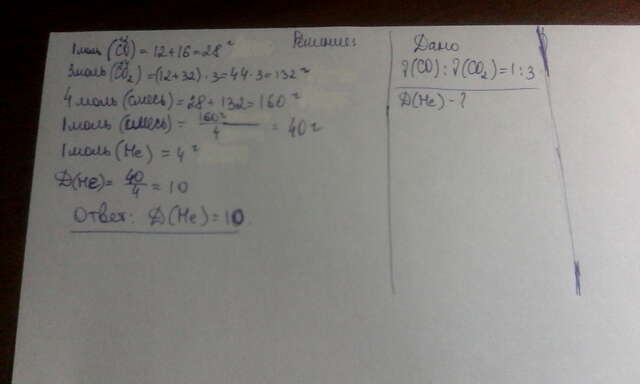 Решение:
1 моль (CO) = 12+16=28 г
3 моль (CO₂) = (12+32)·3=44·3=132 г
4 моль (смесь) = 28+132=160 г
1 моль (смесь) = 160 г / 4 = 40 г
1 моль (He) = 4 г
D(He) = 40/4 = 10
Ответ: D(He) = 10
Дано
ν(CO) : ν(CO₂) = 1:3
D(He) - ?